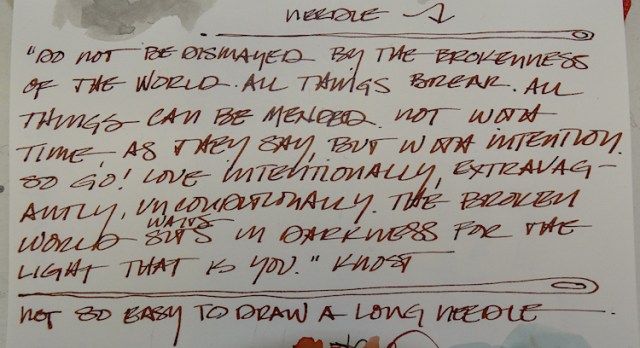 NEEDLE
"DO NOT BE DISMAYED BY THE BROKENNESS
OF THE WORLD. ALL THINGS BREAK. ALL
THINGS CAN BE MENDED. NOT WITH
TIME, AS THEY SAY, BUT WITH INTENTION.
SO GO! LOVE INTENTIONALLY, EXTRAVAG-
ANTLY, UNCONDITIONALLY. THE BROKEN
WAITS
WORLD SITS IN DARKNESS FOR THE
LIGHT THAT IS YOU." KNOST
NOT SO EASY TO DRAW A LONG NEEDLE